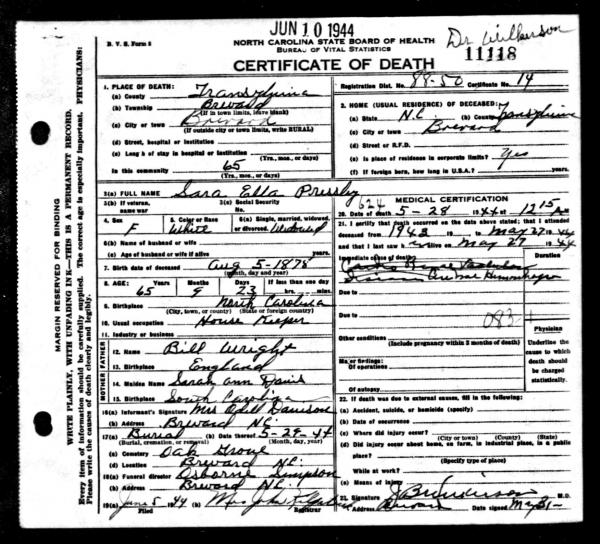 JUN 10 1944
Dr Wilkerson
D. V. S. Form 8
NORTH CAROLINA STATE BOARD OF HEALTH
BUREAU OF VITAL STATISTICS
11118
CERTIFICATE OF DEATH
Registration Dist. No. 88-50 Certificate No. 14
MARGIN RESERVED FOR BINDING
WRITE PLAINLY, WITH UNFADING INK—THIS IS A PERMANENT RECORD.
Every item of information should be carefully supplied. The correct age is especially important. PHYSICIANS:
Please write the causes of death clearly and legibly.
1. PLACE OF DEATH:
(a) County Transylvania
(b) Township Brevard
(If in town limits, leave blank)
(c) City or town Brevard
(If outside city or town limits, write RURAL)
(d) Street, hospital or institution
(e) Long h of stay in hospital or institution
(Yrs., mos., or days)
In this community 65
(Yrs., mos., or days)
2. HOME (USUAL RESIDENCE) OF DECEASED:
(a) State N.C. (b) County Transylvania
(c) City or town Brevard
(d) Street or R.F.D.
(e) Is place of residence in corporate limits? Yes
(f) If foreign born, how long in U.S.A.?
3(a) FULL NAME Sara Ella Pressley
3(b) If veteran, name war
3(c) Social Security No.
4. Sex F
5. Color or Race White
6(a) Single, married, widowed, or divorced Widowed
6(b) Name of husband or wife
6(c) Age of husband or wife if alive
7. Birth date of deceased Aug 5-1878
(month, day and year)
8. AGE: Years 65 Months 9 Days 23 If less than one day hrs. min.
9. Birthplace North Carolina
(City, town, or county) (State or foreign country)
10. Usual occupation House Keeper
11. Industry or business
FATHER
12. Name Bill Wright
13. Birthplace England
MOTHER
14. Maiden Name Sarah Ann Davis
15. Birthplace South Carolina
16(a) Informant's Signature Mrs Odell Davison
(b) Address Brevard N.C.
17(a) Burial (b) Date thereof 5-29-44
(Burial, cremation, or removal) (Month, day, year)
(c) Cemetery Oak Grove
(d) Location Brevard N.C.
18(a) Funeral director Osborne Simpson
(b) Address Brevard N.C.
19(a) June 5 '44 Mrs John
Filed Registrar
624
MEDICAL CERTIFICATION
20. Date of death 5-28 1944 at 12 15
21. I certify that death occurred on the above stated; that I attended
deceased from 1943 to May 27 1944
and that I last saw h er alive on May 27 1944
Immediate cause of death Duration
Due to
Due to 083
Other conditions
(Include pregnancy within 3 months of death)
Major findings:
Of operations
Of autopsy
Physician
Underline the cause to which death should be charged statistically.
22. If death was due to external causes, fill in the following:
(a) Accident, suicide, or homicide (specify)
(b) Date of occurrence
(c) Where did injury occur?
(City or town) (County) (State)
(d) Did injury occur about home, on farm, in industrial place, in public place?
(Specify type of place)
While at work?
(e) Means of injury
23. Signature M.D.
Address Brevard Date signed May 31-